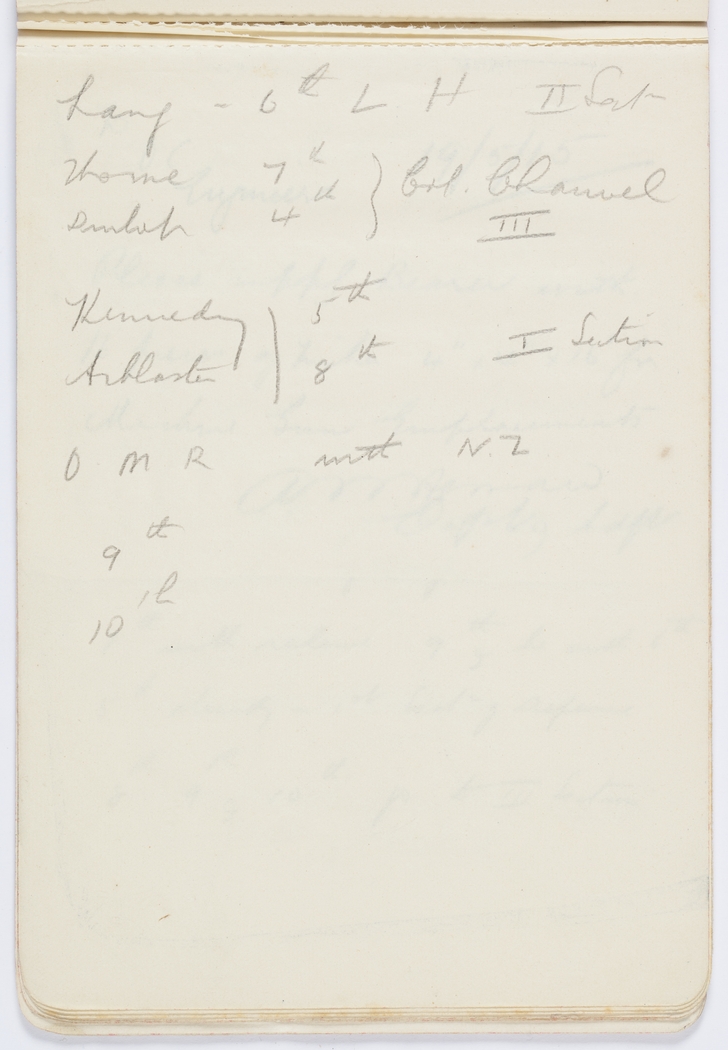 Lang - 6th L H II Sect
Thorne 7th } Col. Chauvel
Dunlop 4th III
Kennedy ) 5th
Arblaster 8th I Section
O M R with N.Z
9th
10th